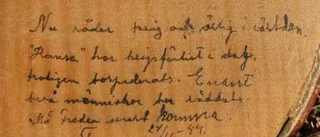 Nu råder krig och räklig i världen.
"Hansa" har krigsförlist i dag,
troligen torpederats. Endast
två människor har räddats.
Må freden snart komma.
24/11-44.